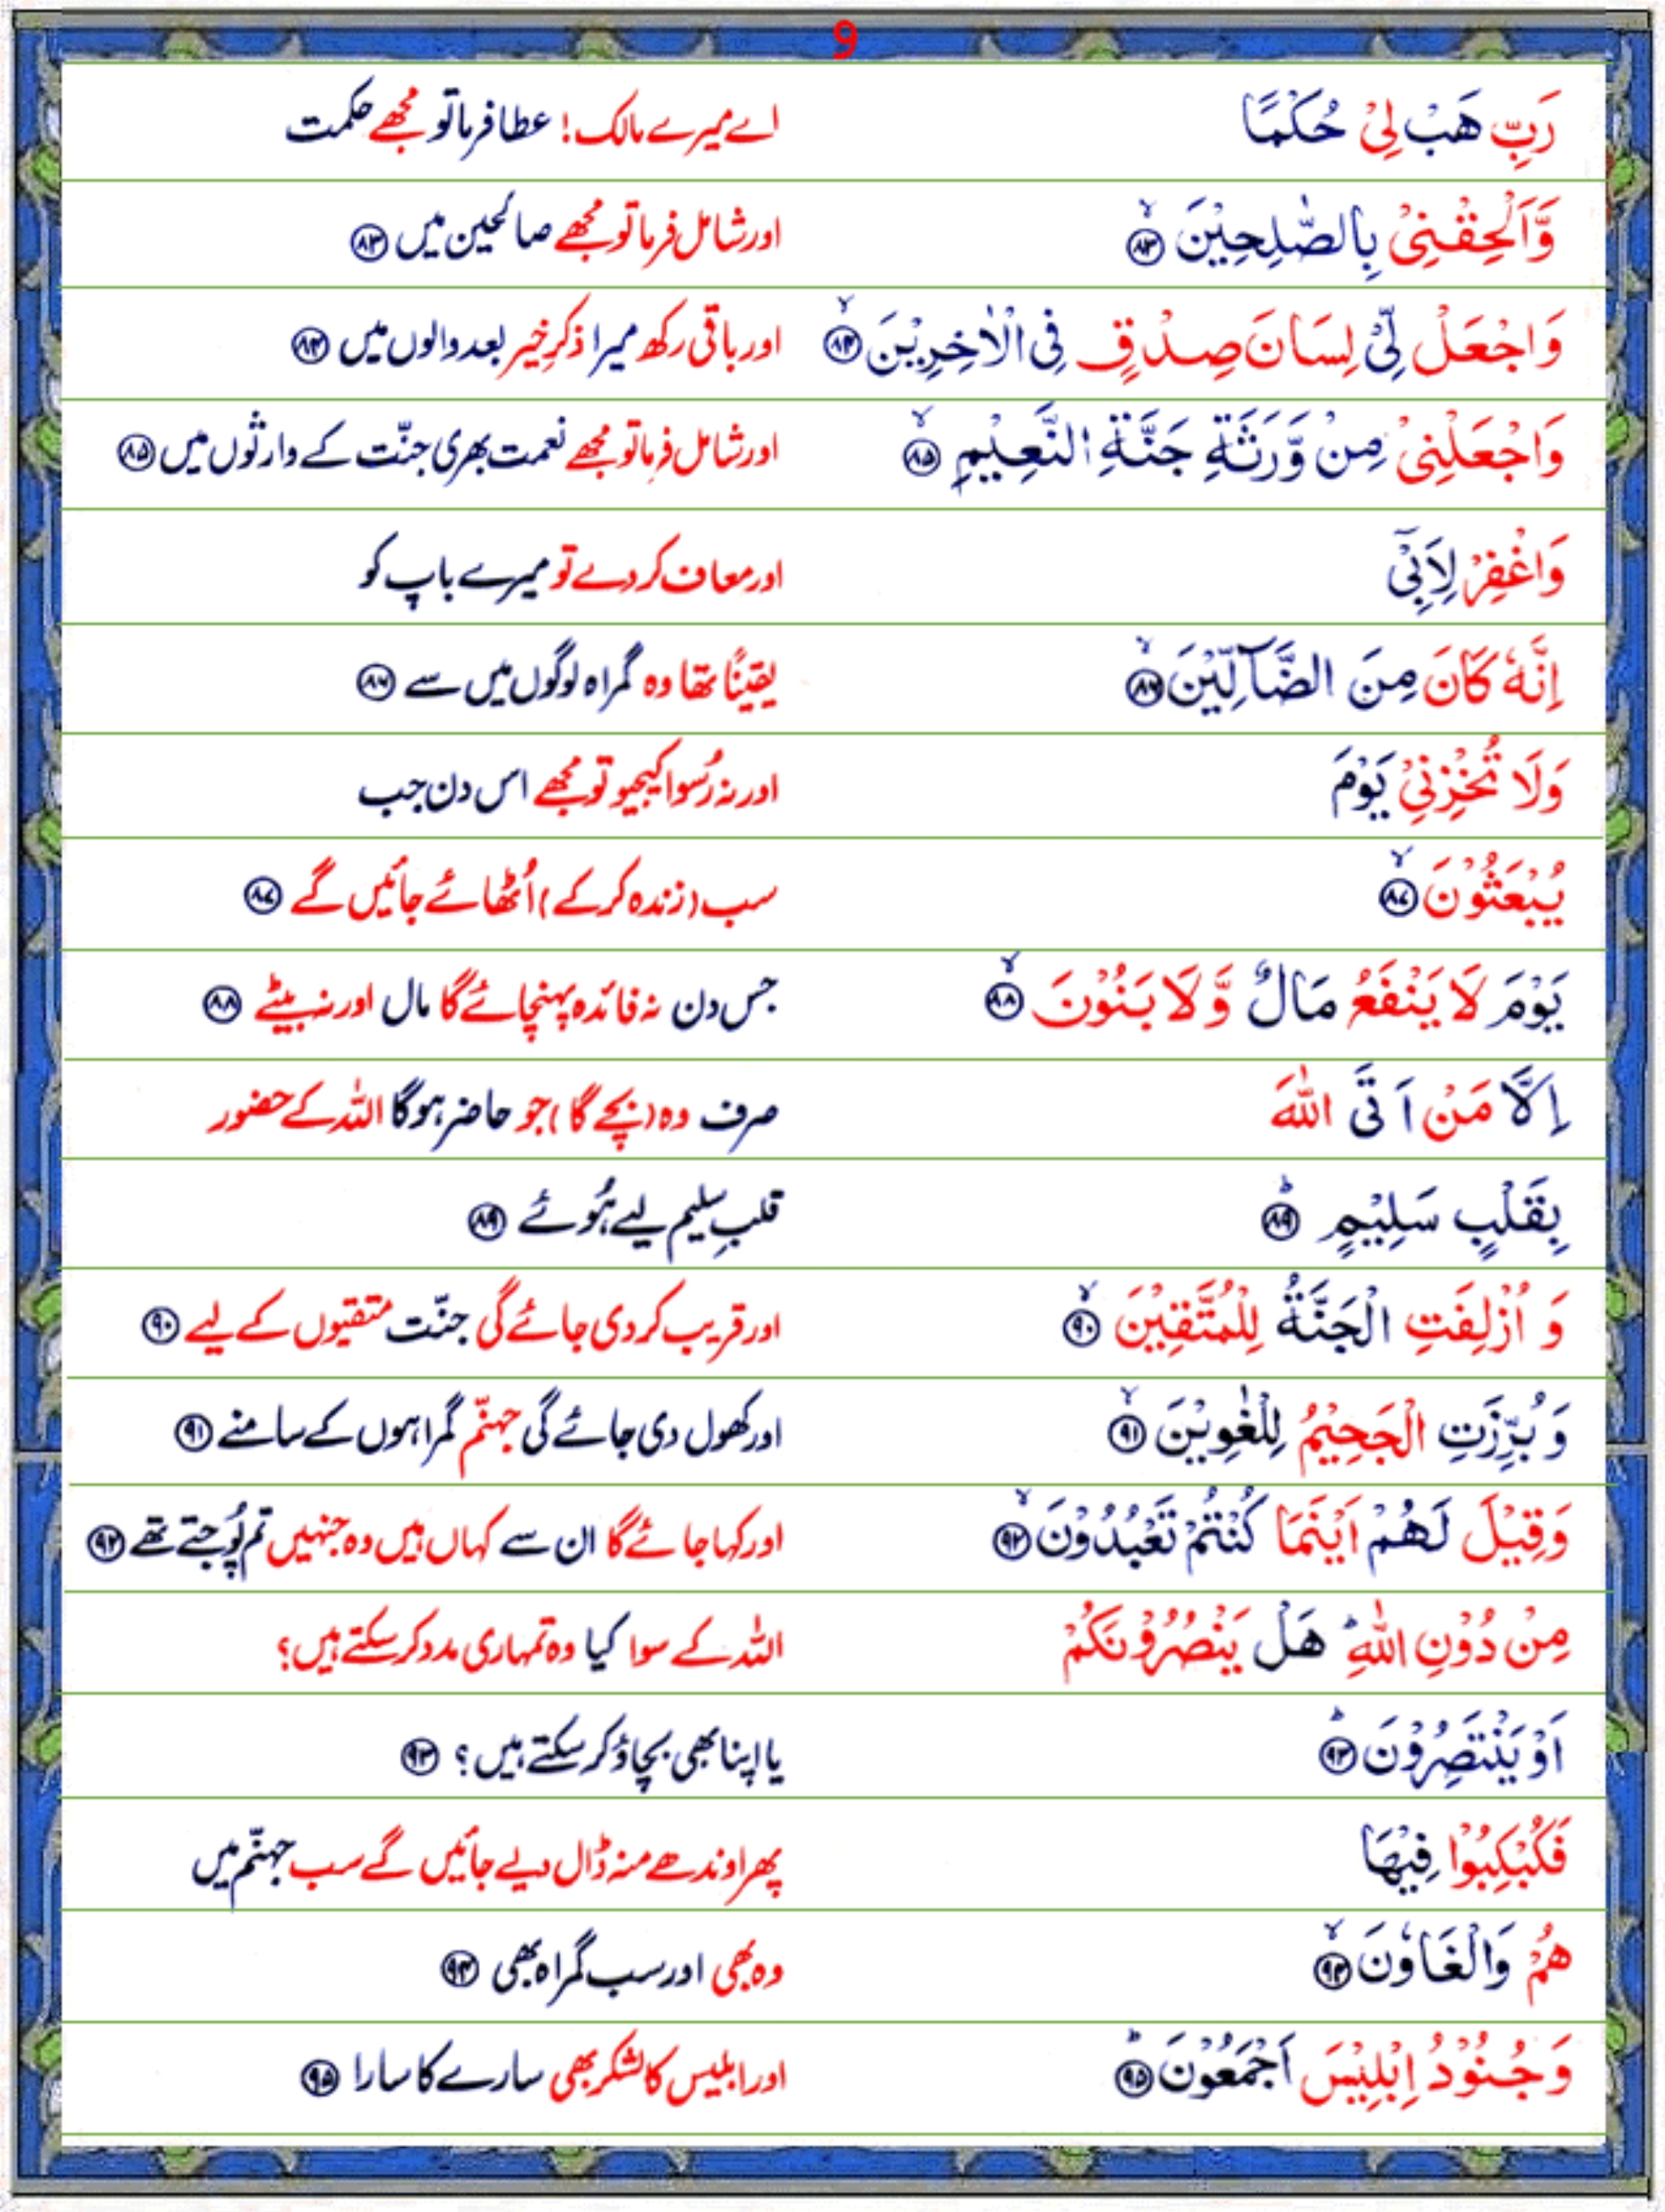 9
رَبِّ هَبْ لِیْ حُكْمًا اے میرے مالک! عطا فرما تو مجھے حکمت
وَّاَلْحِقْنِیْ بِالصّٰلِحِیْنَ ﴿۸۳﴾ اور شامل فرما تو مجھے صالحین میں ﴿۸۳﴾
وَاجْعَلْ لِّیْ لِسَانَ صِدْقٍ فِی الْاٰخِرِیْنَ ﴿۸۴﴾ اور باقی رکھ میرا ذکرِ خیر بعد والوں میں ﴿۸۴﴾
وَاجْعَلْنِیْ مِنْ وَّرَثَةِ جَنَّةِ النَّعِیْمِ ﴿۸۵﴾ اور شامل فرما تو مجھے نعمت بھری جنّت کے وارثوں میں ﴿۸۵﴾
وَاغْفِرْ لِاَبِیْۤ اور معاف کر دے تو میرے باپ کو
اِنَّهٗ كَانَ مِنَ الضَّآلِّیْنَ ﴿۸۶﴾ یقینًا تھا وہ گمراہ لوگوں میں سے ﴿۸۶﴾
وَلَا تُخْزِنِیْ یَوْمَ اور نہ رُسوا کیجیو تو مجھے اس دن جب
یُبْعَثُوْنَ ﴿۸۷﴾ سب (زندہ کر کے) اُٹھائے جائیں گے ﴿۸۷﴾
یَوْمَ لَا یَنْفَعُ مَالٌ وَّلَا بَنُوْنَ ﴿۸۸﴾ جس دن نہ فائدہ پہنچائے گا مال اور نہ بیٹے ﴿۸۸﴾
اِلَّا مَنْ اَتَی اللّٰهَ صرف وہ (بچے گا) جو حاضر ہوگا اللہ کے حضور
بِقَلْبٍ سَلِیْمٍ ﴿۸۹﴾ قلبِ سلیم لیے ہُوئے ﴿۸۹﴾
وَ اُزْلِفَتِ الْجَنَّةُ لِلْمُتَّقِیْنَ ﴿۹۰﴾ اور قریب کر دی جائے گی جنّت متقیوں کے لیے ﴿۹۰﴾
وَ بُرِّزَتِ الْجَحِیْمُ لِلْغٰوِیْنَ ﴿۹۱﴾ اور کھول دی جائے گی جہنّم گمراہوں کے سامنے ﴿۹۱﴾
وَقِیْلَ لَهُمْ اَیْنَمَا كُنْتُمْ تَعْبُدُوْنَ ﴿۹۲﴾ اور کہا جائے گا ان سے کہاں ہیں وہ جنہیں تم پُوجتے تھے ﴿۹۲﴾
مِنْ دُوْنِ اللّٰهِ ؕ هَلْ یَنْصُرُوْنَكُمْ اللہ کے سوا کیا وہ تمہاری مدد کر سکتے ہیں؟
اَوْ یَنْتَصِرُوْنَ ﴿۹۳﴾ یا اپنا بھی بچاؤ کر سکتے ہیں؟ ﴿۹۳﴾
فَكُبْكِبُوْا فِیْهَا پھر اوندھے منہ ڈال دیے جائیں گے سب جہنّم میں
هُمْ وَالْغَاوٗنَ ﴿۹۴﴾ وہ بھی اور سب گمراہ بھی ﴿۹۴﴾
وَجُنُوْدُ اِبْلِیْسَ اَجْمَعُوْنَ ﴿۹۵﴾ اور ابلیس کا لشکر بھی سارے کا سارا ﴿۹۵﴾